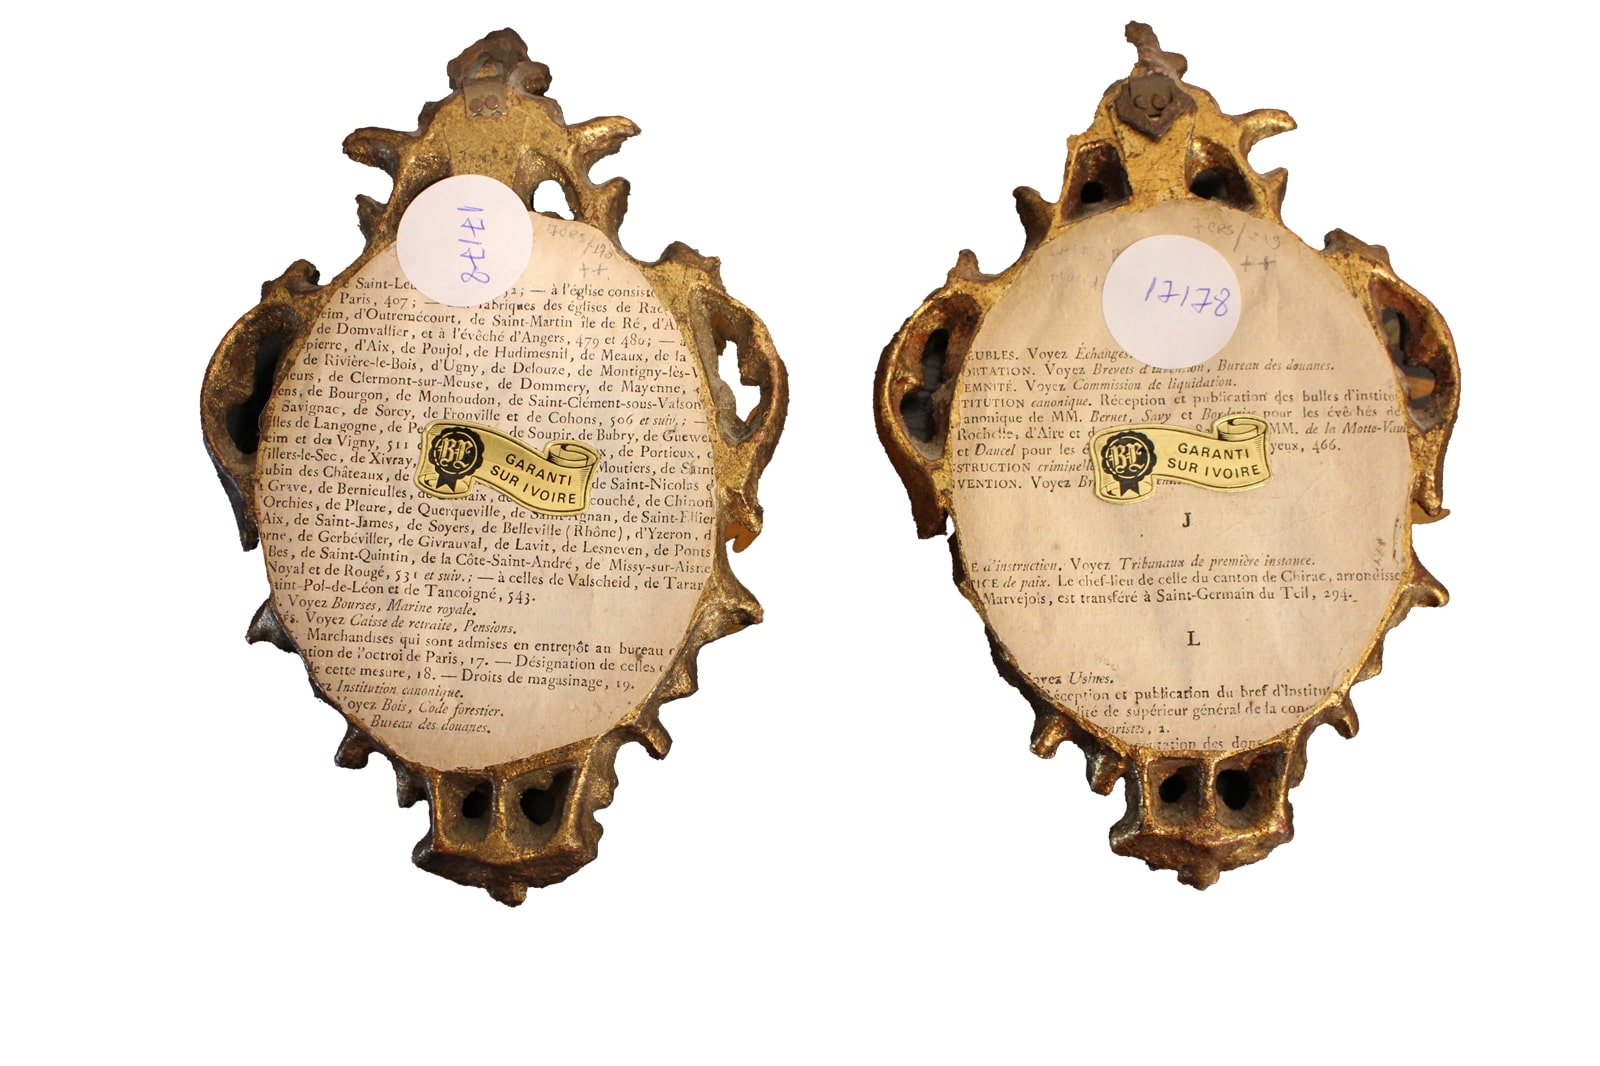 17178
e Saint-Leu 52; — à l'église consist
Paris, 407; — fabriques des églises de
eim, d'Outremécourt, de Saint-Martin île de Ré, d'A
de Domvallier, et à l'évêché d'Angers, 479 et 480; —
pierre, d'Aix, de Poujol, de Hudimesnil, de Meaux, de la
de Rivière-le-Bois, d'Ugny, de Delouze, de Montigny-lès-V
ieurs, de Clermont-sur-Meuse, de Dommery, de Mayenne,
ens, de Bourgon, de Monhoudon, de Saint-Clément-sous-Valson
Savignac, de Sorcy, de Fronville et de Cohons, 506 et suiv.; —
elles de Langogne, de Pe de Soupir, de Bubry, de Guewe
eim et de Vigny, 511 x, de Portieux,
illers-le-Sec, de Xivray, Moutiers, de Saint
ubin des Châteaux, de de Saint-Nicolas d
Grave, de Berniculles, de couché, de Chinon
Orchies, de Pleure, de Querqueville, de Saint-Agnan, de Saint-Ellier
Aix, de Saint-James, de Soyers, de Belleville (Rhône), d'Yzeron, d
orne, de Gerbéviller, de Givrauval, de Lavit, de Lesneven, de Ponts
Bes, de Saint-Quintin, de la Côte-Saint-André, de Missy-sur-Aisne
Noyal et de Rougé, 531 et suiv.; — à celles de Valscheid, de Tarar
aint-Pol-de-Léon et de Tancoigné, 543.
Voyez Bourses, Marine royale.
és. Voyez Caisse de retraite, Pensions.
Marchandises qui sont admises en entrepôt au bureau
ation de l'octroi de Paris, 17. — Désignation de celles
e cette mesure, 18. — Droits de magasinage, 19.
ez Institution canonique.
Voyez Bois, Code forestier.
Bureau des douanes.
BL
GARANTI
SUR IVOIRE
17178
EUBLES. Voyez Échanges.
ORTATION. Voyez Brevets d'invention, Bureau des douanes.
EMNITÉ. Voyez Commission de liquidation.
TITUTION canonique. Réception et publication des bulles d'institu
anonique de MM. Bernet, Savy et pour les évêchés de
Rochelle, d'Aire et d MM. de la Motte-Vau
et Dancel pour les é yeux, 466.
STRUCTION criminelle
VENTION. Voyez Br
BL
GARANTI
SUR IVOIRE
J
E d'instruction. Voyez Tribunaux de première instance.
TICE de paix. Le chef-lieu de celle du canton de Chirac, arrondisse
Marvejols, est transféré à Saint-Germain du Teil, 294.
L
oyez Usines.
Réception et publication du bref d'institu
lité de supérieur général de la con
aristes, 2.
tation des don